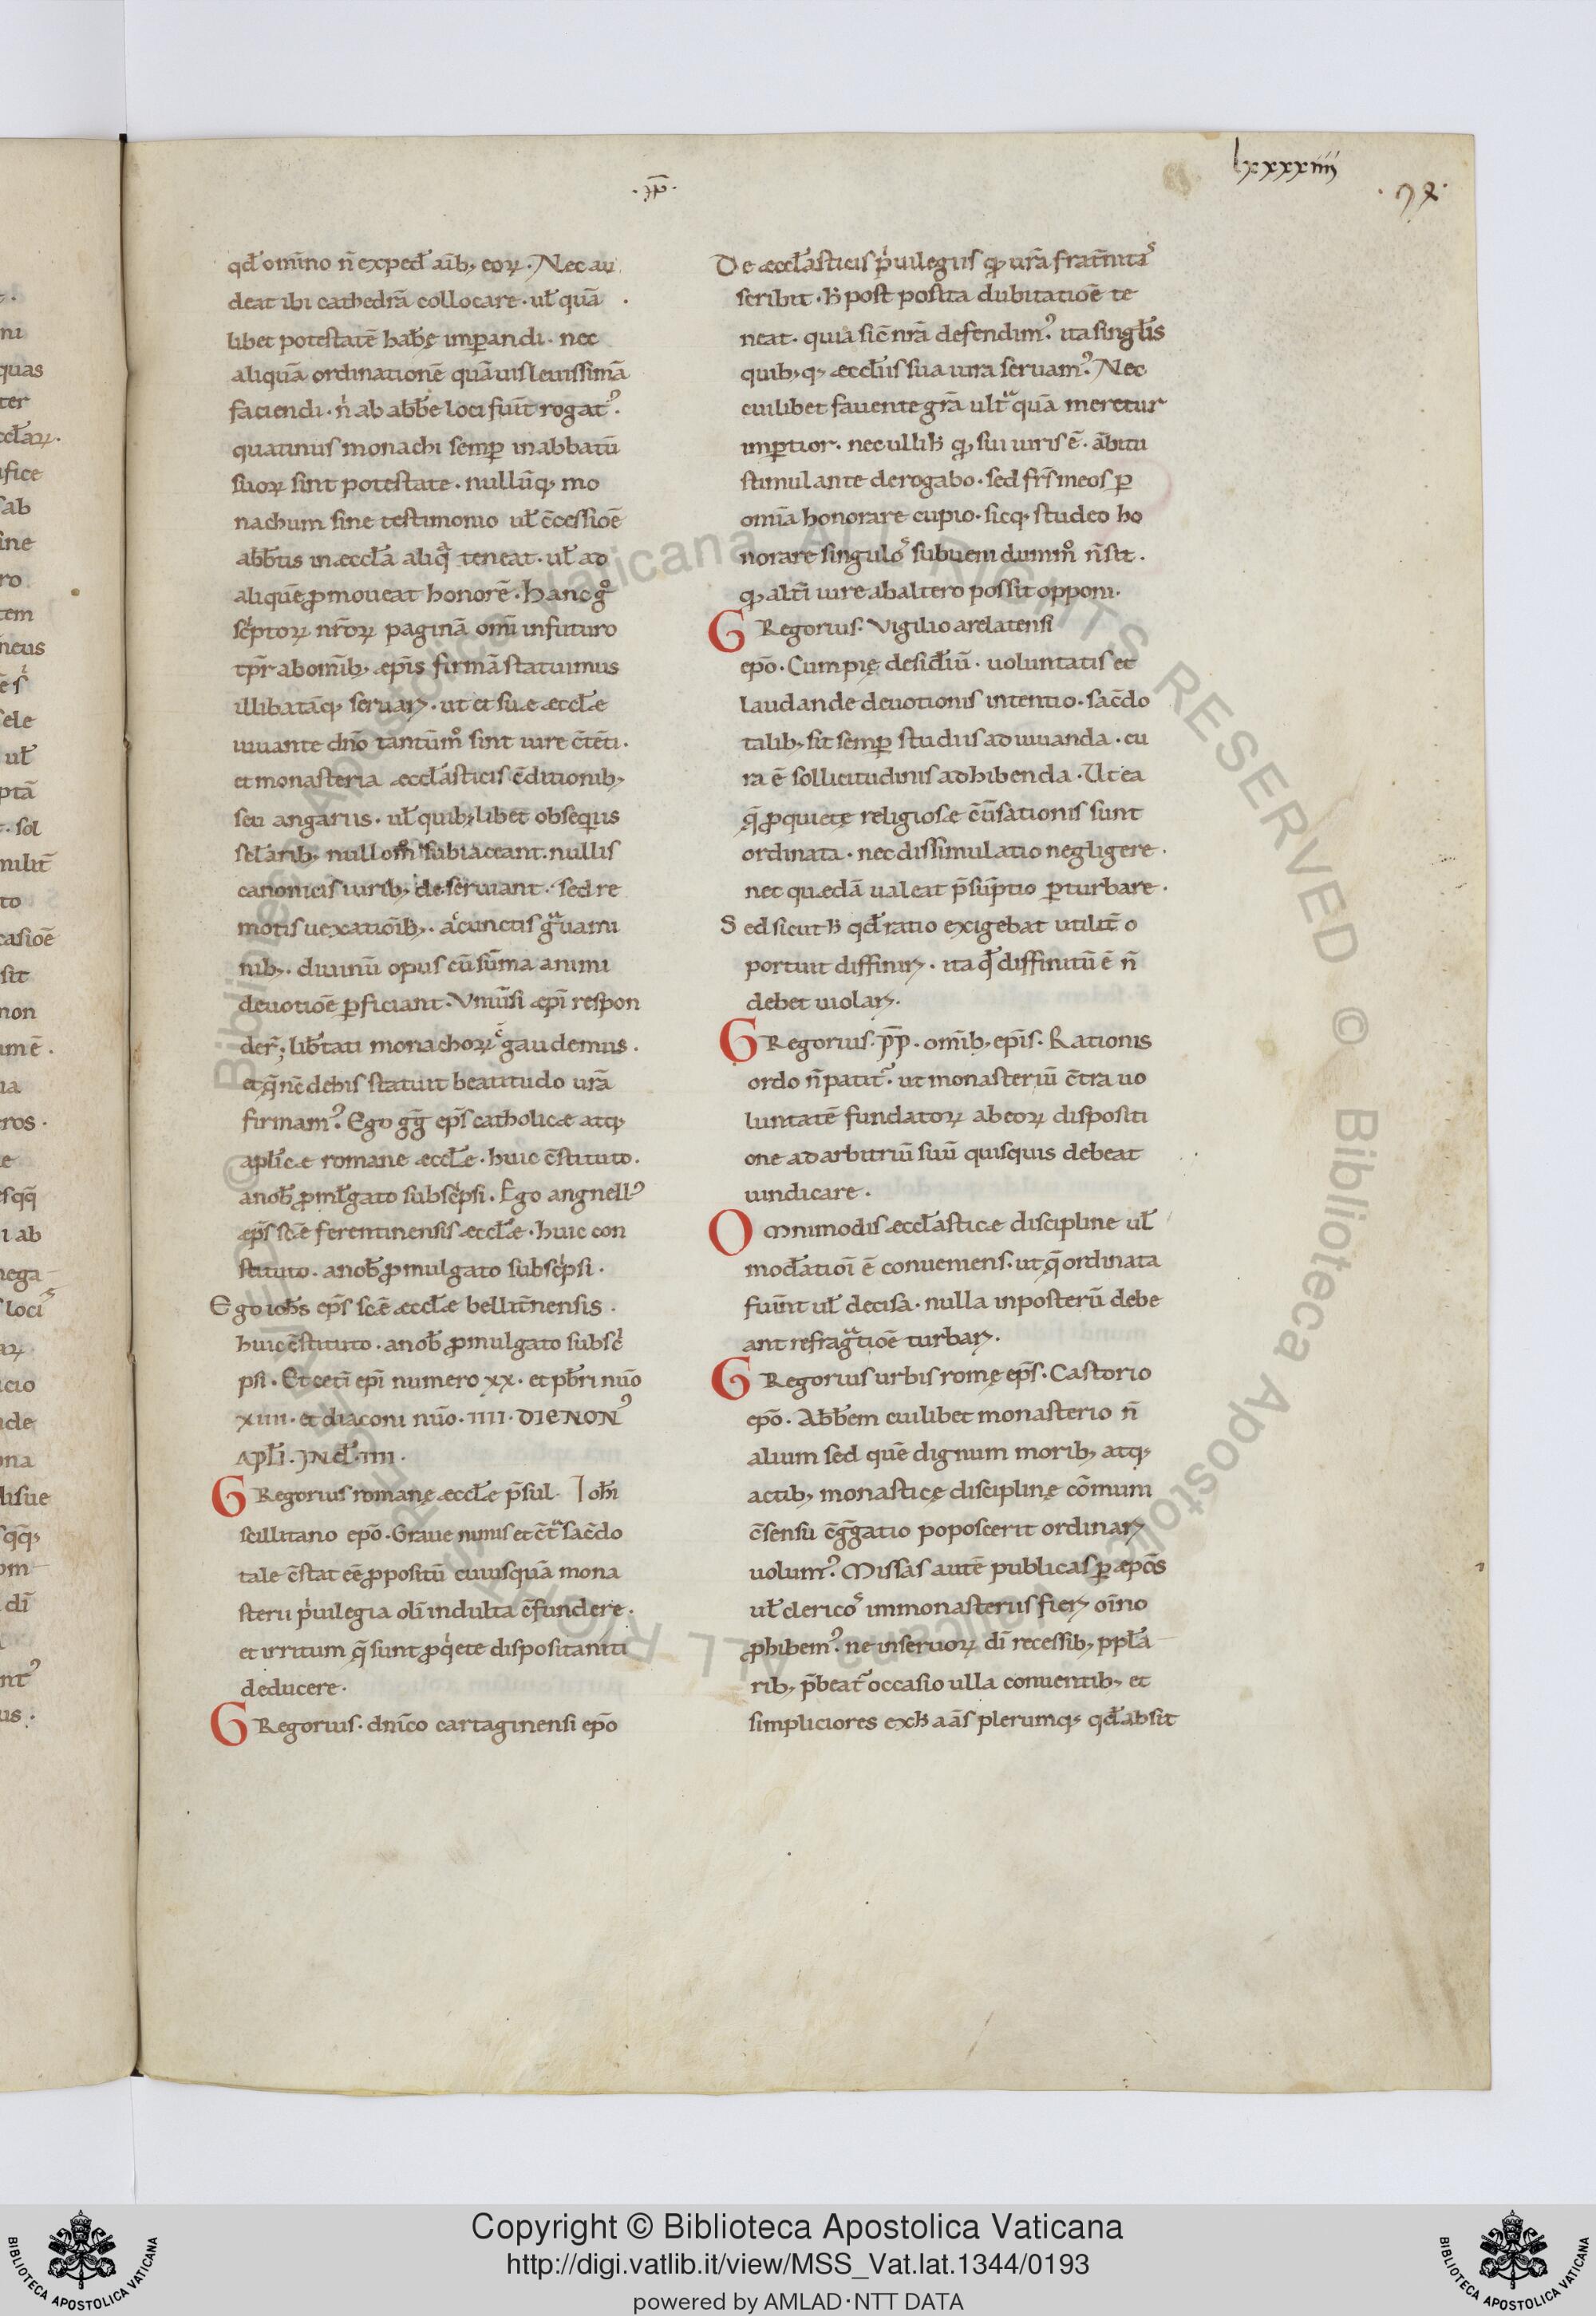 lxxxxiiij
qđ omīno n̄ exped̄ aīb; eoꝝ. Nec au
deat ibi cathedrā collocare. ul̄ quā
libet potestatē hab̄ę imꝑandi. nec
aliquā ordinationē quāuis leuissimā
faciendi. nͥ ab abb̄e loci fuīt rogatꝰ.
quatinus monachi semꝑ in abbatū
suoꝝ sint potestate. nullūq; mo
nachum sine testimonio ul̄ c̄cessiōe
abb̄tis in æccl̄a aliqͣ teneat. ul̄ ad
aliquē ꝓmoueat honorē. Hanc gͦ
scͥptoꝝ nr̄oꝝ paginā om̄i in futuro
tp̄r ab om̄ib; æpīs firmā statuimus
illibatāq; seruarꝫ. ut et suæ æccl̄æ
iuuante dn̄o tantūmͦ sint iure c̄tēti.
et monasteria æccl̄asticis c̄ditionib;
seu angariis. ul̄ quib;libet obsequiis
sc̄larib; nullomͦ subiaceant. nullis
canonicis iurib; deseruiant. sed re
motis uexatiōib;. ac͛ cunctis gͣuami
nib;. diuinū opus cū sūma animi
deuotiōe ꝑficiant. Vniūsi æpī respon
der̄; lib̄tati monachoꝝ c̄gaudemus.
et q̄ nc̄ de his statuit beatitudo ur̄a
firmamꝰ. Ego gḡ ep̄s catholicæ atq;
apl̄icæ romane æccl̄e. huic c̄stituto.
a nob̄ ꝓml̄gato subscͥpsi. Ego angnellꝰ
æp̄s sc̄æ ferentinensis æccl̄æ. huic con
stituto. a nob̄ ꝓmulgato subscͥpsi.
Ego ioh̄s ep̄s sc̄ē æccl̄æ bellit̄nensis.
huic c̄stituto. a nob̄ ꝓmulgato subscͥ
psi. Et cet̄i epī numero xx. et pb̄ri nūo
xiiii. et diaconi nūo. iiii. DIE NONꝰ
Apl̄i. INd̄. iiii.
GRegorius romanę æccl̄æ p̄sul. Ioh̄i
scillitano ep̄o. Graue nimis et c̄tͣ sac̄do
tale c̄stat eē ꝓpositū cuiusquā mona
sterii pͥuilegia oli indulta c̄fundere.
et irritum q̄ sunt ꝓ qͥete disposita niti
deducere.
GRegorius. dn̄ico cartaginensi ep̄o
De æccl̄asticis pͥuilegiis qͩ ur̄a frat̄nitaˢ
scribit. ꝶ post posita dubitatiōe te
neat. quia sic̄ nr̄a defendimꝰ. ita singl̄is
quib;q; æccl̄iis sua iura seruamꝰ. Nec
cuilibet fauente gr̄a ultͣ quā meretur
imꝑtior. nec ulli ꝶ qͩ sui iuris ē. ābitu
stimulante derogabo. sed fr̄s meos ꝑ
omīa honorare cupio. sicq; studeo ho
norare singuloˢ subueni dummͦ n̄ sit.
qͩ alt̄i iure ab altero possit opponi.
GRegorius. Vigilio arelatensi
ep̄o. Cum pię desid̄iū. uoluntatis et
laudande deuotionis intentio. sac̄do
talib; sit semꝑ studiis adiuuanda. cu
ra ē sollicitudinis adhibenda. Ut ea
q̄ ꝓ quiete religiosæ c̄ūsationis sunt
ordinata. nec dissimulatio negligere.
nec quædā ualeat p̄sūptio ꝑturbare.
Sed sicut ꝶ qđ ratio exigebat utilit̄ o
portuit diffinirꝫ. ita qđ diffinitū ē n̄
debet uiolarꝫ.
GRegorius. pp̄. om̄ib; epīs. Rationis
ordo n̄ patitͬ. ut monasteriū c̄tra uo
luntatē fundatoꝝ ab eoꝝ dispositi
one ad arbitriū suū quisquis debeat
uindicare.
Omnimodis æccl̄asticæ discipline ul̄
mod̄atioi ē conueniens. ut q̄ ordinata
fuīnt ul̄ decisa. nulla in posterū debe
ant refragͣtiōe turbarꝫ.
GRegorius urbis romę ep̄s. Castorio
ep̄o. Abb̄em cuilibet monasterio n̄
alium sed quē dignum morib; atq;
actib; monasticę disciplinę cōmuni
c̄sensu c̄gḡatio poposcerit ordinarꝫ
uolumꝰ. Missas autē publicas ꝑ æpōs
ul̄ clericoˢ in monasteriis fierꝫ oīno
ꝓhibemꝰ. ne in seruoꝝ dī recessib; ppl̄a
rib; p̄beatͬ occasio ulla conuentib; et
simpliciores ex ꝶ aās plerumq; qđ absit
Copyright © Biblioteca Apostolica Vaticana
http://digi.vatlib.it/view/MSS_Vat.lat.1344/0193
powered by AMLAD·NTT DATA